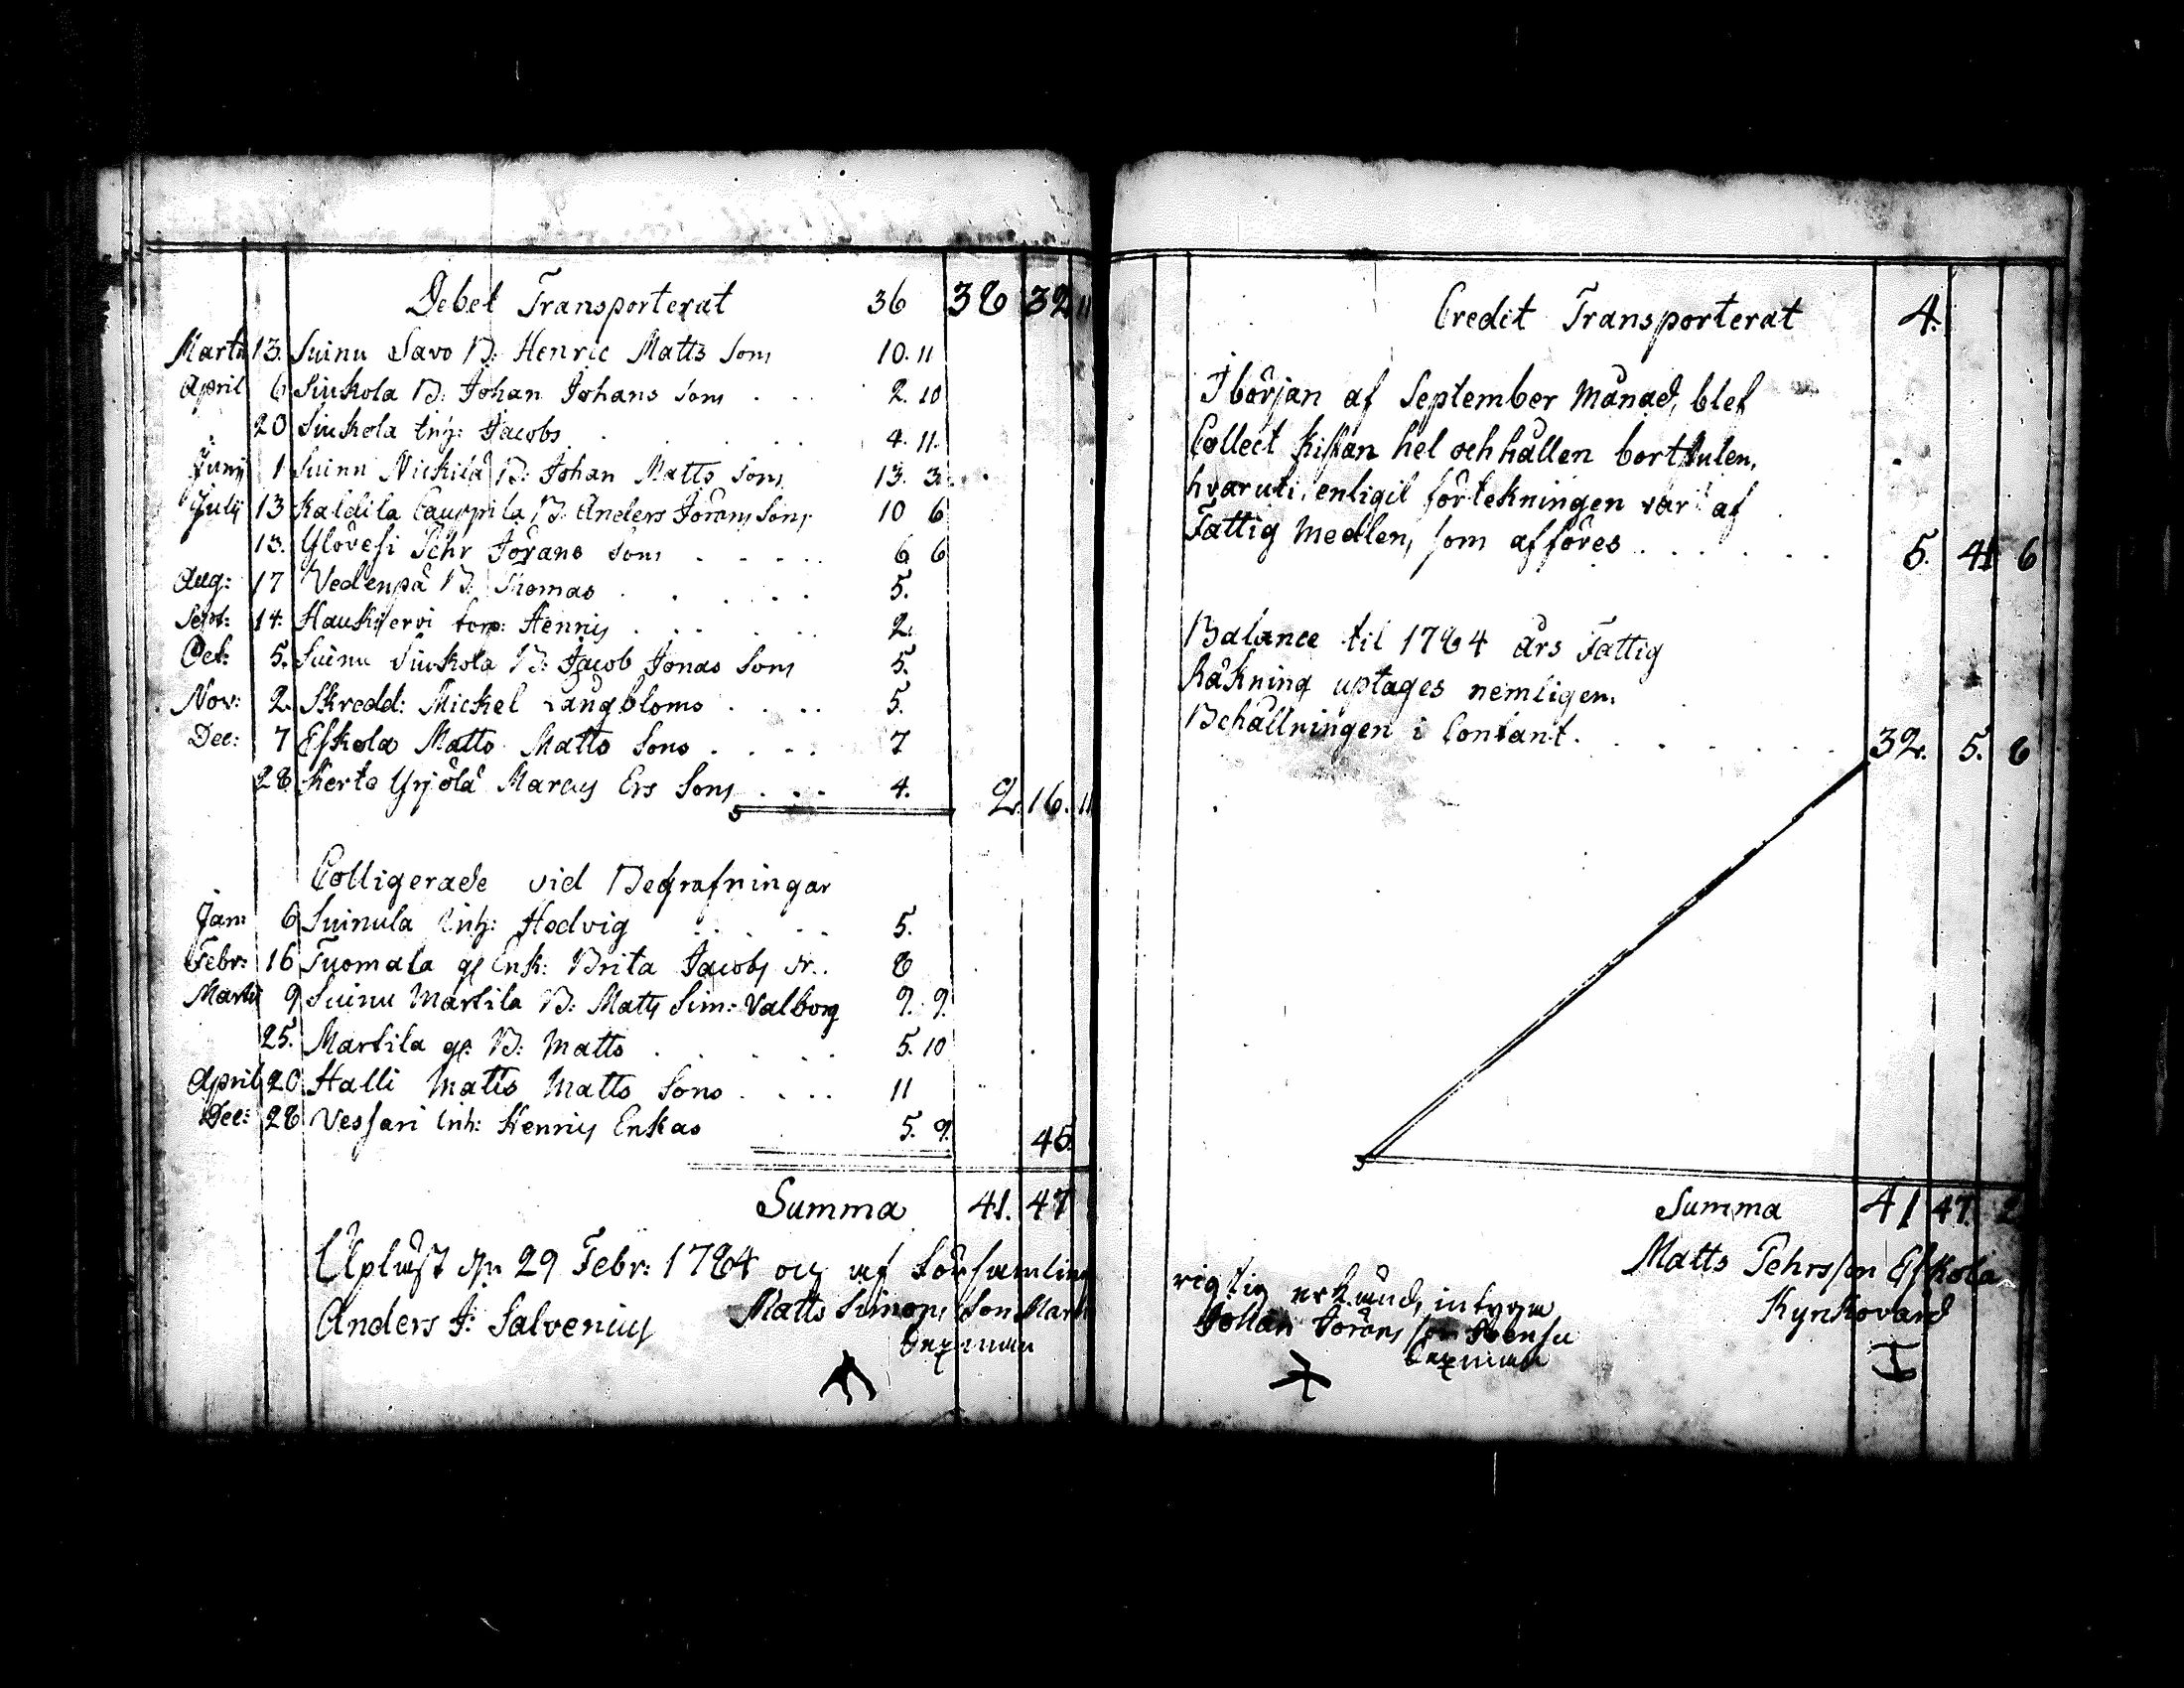 Debet Transporterat 36 38 32 11
Martii 13. Suinu Savo B: Henric Matts Sons 10. 11
April 6 Siukola B: Johan Johans Sons . . . 2. 10
20 Siukola inh: Jacobs . . . . 4. 11.
Junij 1 Suinu Nickilä B: Johan Matts Sons 13. 3.
Julij 13 Kaldila Caurpila B. Anders Jörans Sons 10 6
13. Ylövesi Pehr Jörans Sons . . . . . 6 6
Aug: 17 Vedenpä B: Thomas . . . . . 5.
Sept: 14. Haukijervi torp: Henrics . . . . . 2.
Oct: 5. Suinu Siukola B: Jacob Jonas Sons 5.
Nov: 2. Skredd: Mickel Långbloms . . . . 5.
Dec: 7 Eskola Matts Matts Sons . . . . 7
28 Kerte Yrjölä Marcus Ers Sons . . . 4. 2. 16. 11
Colligerade vid Begrafningar
Jan: 6 Suinula Inh: Hedvig . . . . 5.
Febr: 16 Tuomala gl Enk: Brita Jacobs dr. . 8
Martii 9 Suinu Martila B: Matts Sim: Valborg 9. 9.
25. Martila gl: B: Matts . . . . . 5. 10
April 20 Halli Matts Matts Sons . . . . 11
Dec: 28 Vessari Inh: Henrics Enkas 5. 9. 45.
Summa 41. 47
Uplæst d. 29 Febr: 1784 och af Församling
Anders J: Salvenius Matts Simons Son Marti
Sexman
Credit Transporterat 4.
I början af September Månad, blef
Collect Kistan hel och hållen bortstulen,
hvaruti enligit förtekningen var af
Fattig Medlen, som afföres . . . . . . 5. 41 6
Balance til 1784 års Fattig
Räkning uptages nemligen.
Behållningen i Contant. . . . . . . 32. 5. 8
Summa 41 47. 2
Matts Pehrsson Eskola
Kyrkovärd
rigtig erkänd, intyga
Johan Jörans son
Sexman